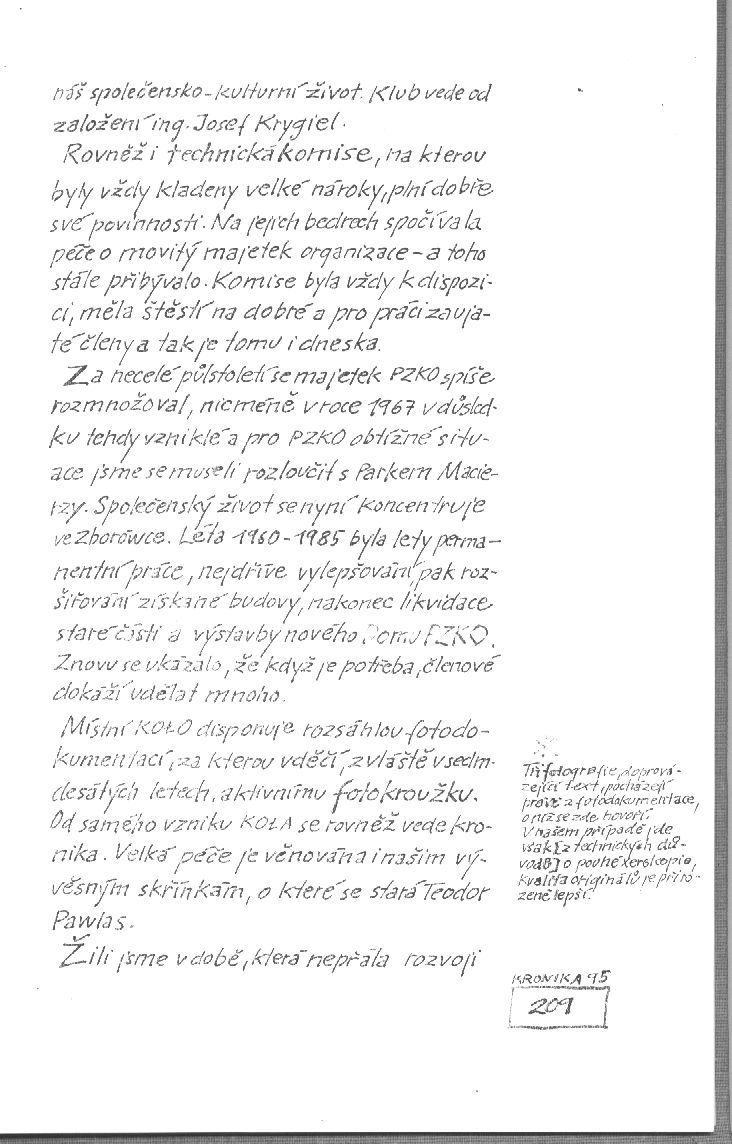 náš společensko-kulturní život. Klub vede od
založení ing. Josef Krygiel.
Rovněž i technická komise, na kterou
byly vždy kladeny velké nároky, plní dobře
své povinnosti. Na jejich bedrech spočívala
péče o movitý majetek organizace - a toho
stále přibývalo. Komise byla vždy k dispozi-
ci, měla štěstí na dobré a pro práci zauja-
té členy a tak je tomu i dneska.
Za necelé půlstoletí se majetek PZKO spíše
rozmnožoval, nicméně v roce 1967 v důsled-
ku tehdy vzniklé a pro PZKO obtížné situ-
ace jsme se museli rozloučit s Parkem Macie-
rzy. Společenský život se nyní koncentruje
ve Zborówce. Léta 1960-1985 byla lety perma-
nentní práce, nejdříve vylepšování pak roz-
šiřování získané budovy, nakonec likvidace
staré části a výstavby nového Domu PZKO.
Znovu se ukázalo, že když je potřeba, členové
dokáží udělat mnoho.
Místní KOŁO disponuje rozsáhlou fotodo-
kumentací, za kterou vděčí, zvláště v sedm-
desátých letech, aktivnímu fotokroužku.
Od samého vzniku KOŁA se rovněž vede kro-
nika. Velká péče je věnována i našim vý-
věsným skřínkám, o které se stará Teodor
Pawlas.
Žili jsme v době, která nepřála rozvoji
Tři fotografie, doprová-
zející text, pocházejí
právě z fotodokumentace,
o níž se zde hovoří.
V našem případě jde
však [z technických dů-
vodů] o pouhé xerokopie,
kvalita originálů je přiro-
zeně lepší.
KRONIKA 95
209